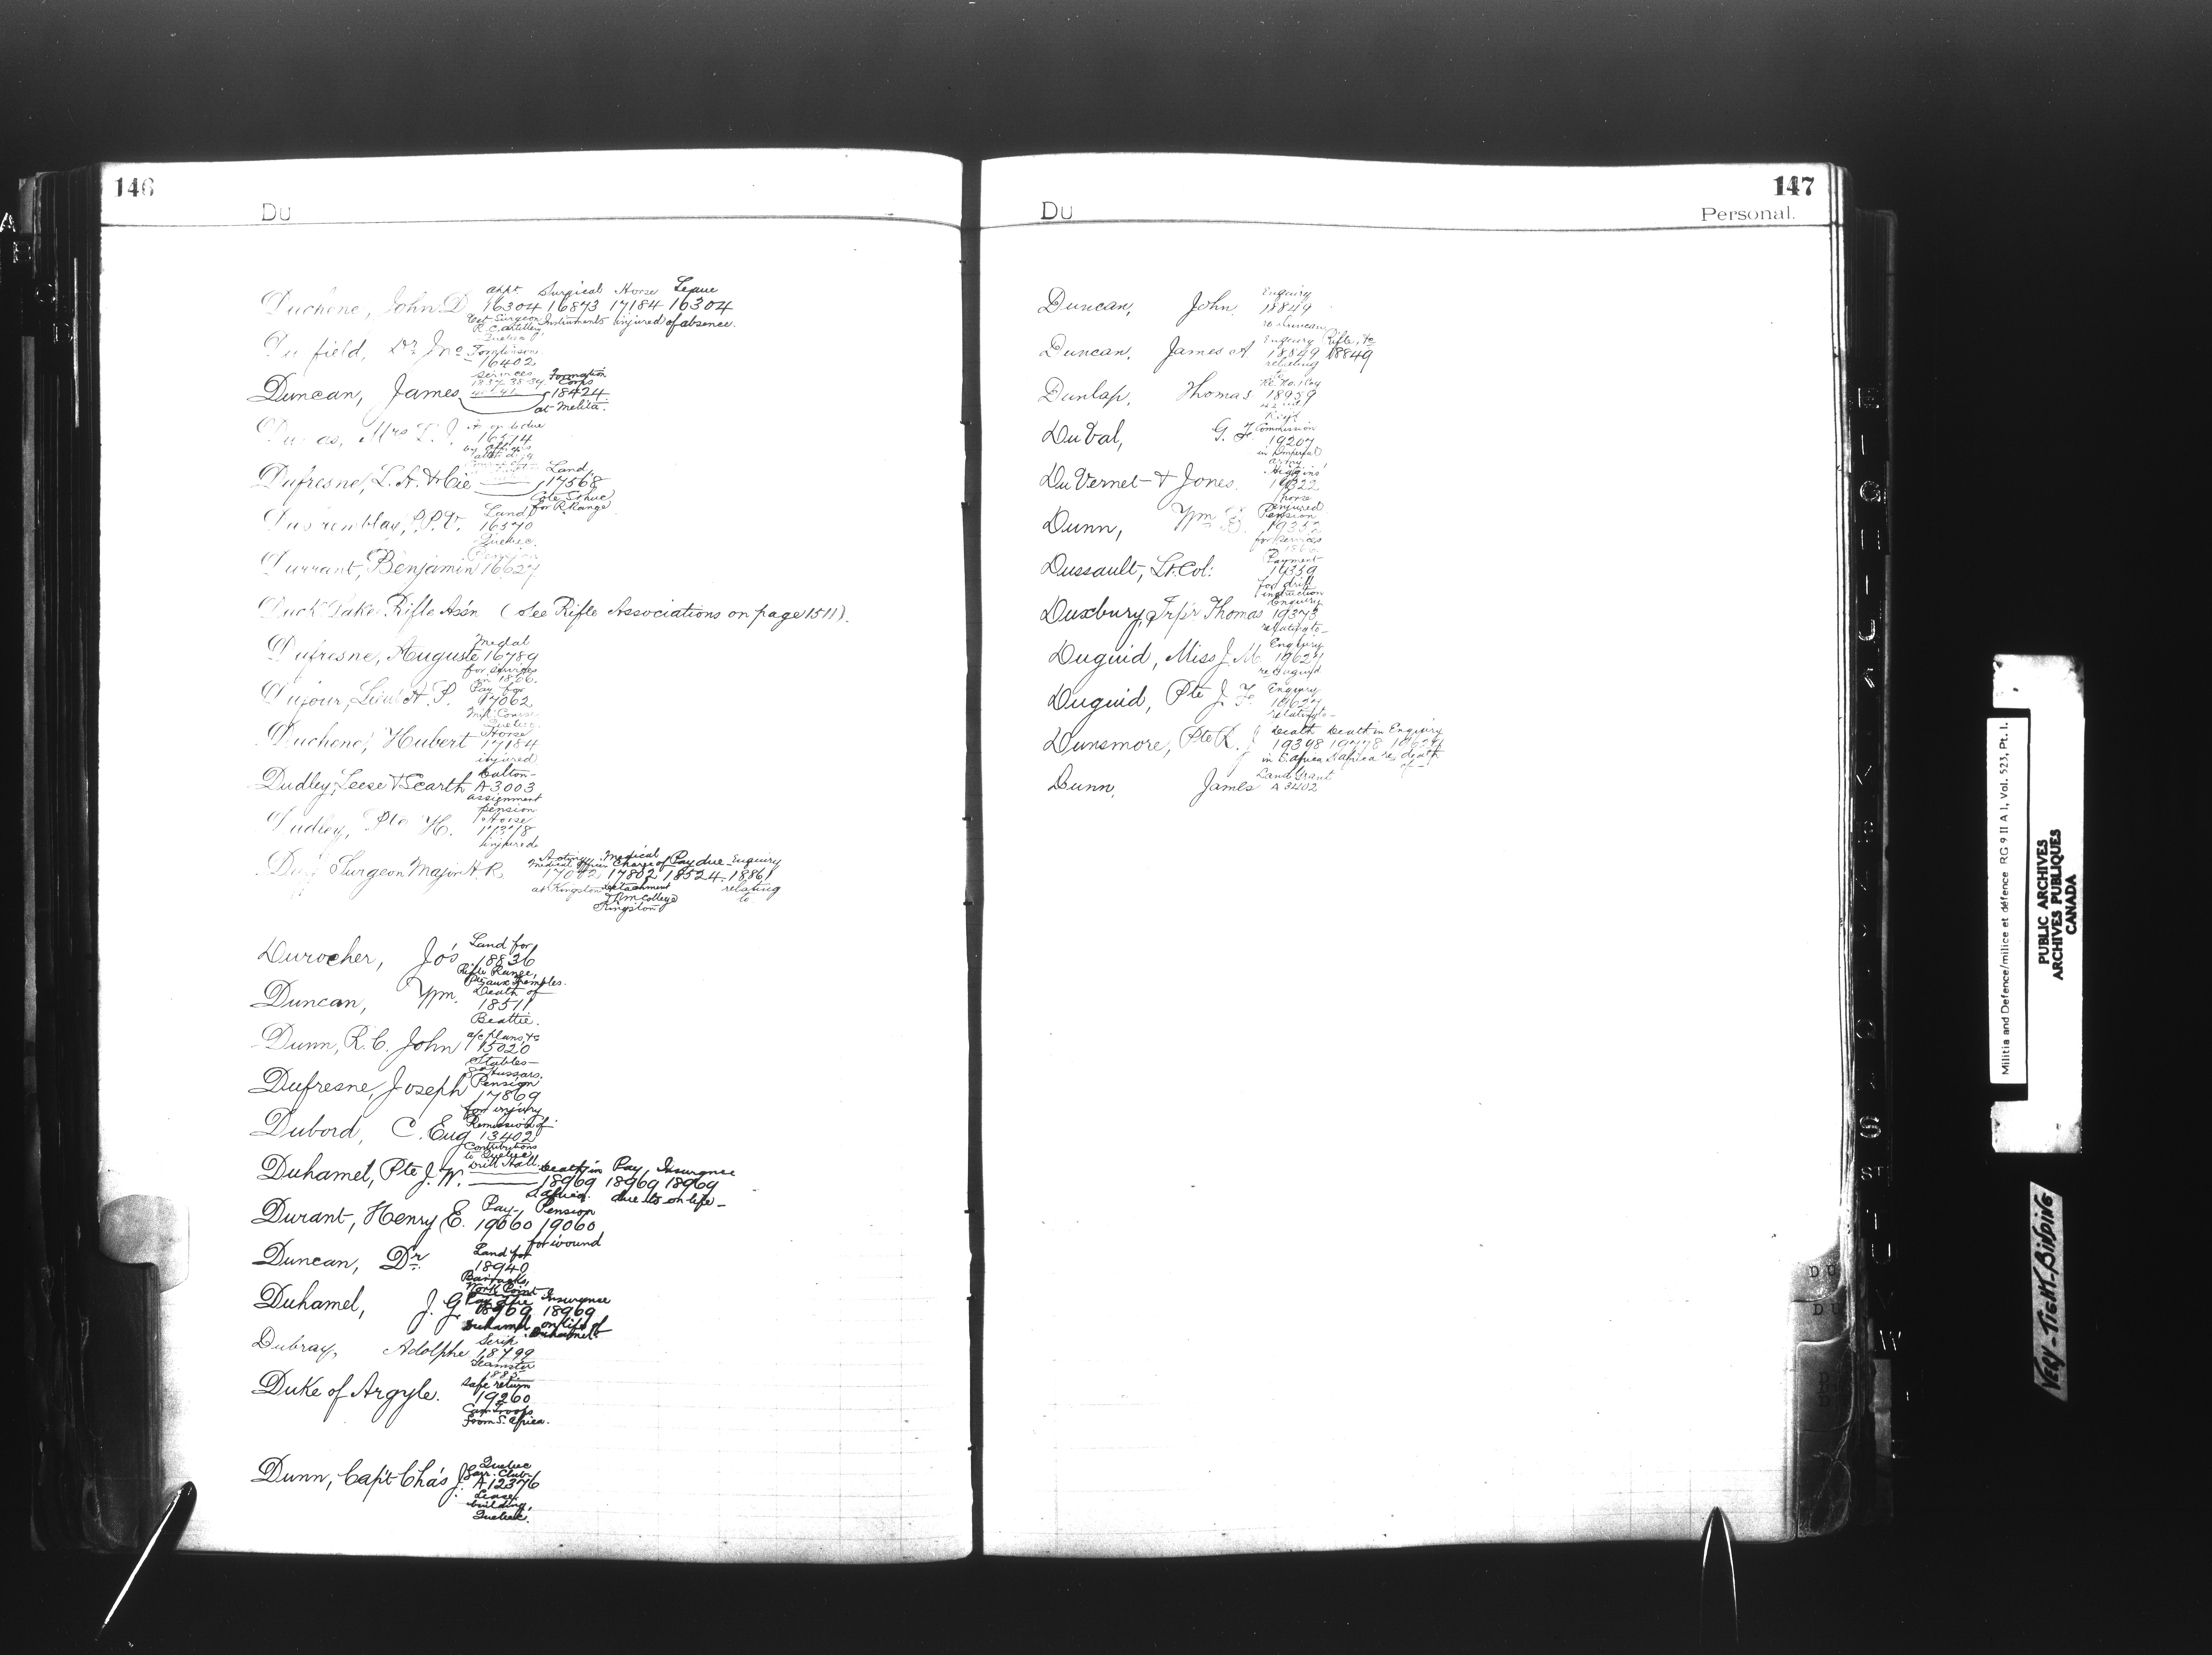 146
Du
appt Surgical Horse Leave
Duchene, John D. 16304 16873 17184 16304
Vet Surgeon Instruments injured of absence.
R.C. Artillery,
field, Dr. Jno Tomlinson
16402
services Formation
1837-38-39 Corps
Duncan, James 18424
at Melita.
Mrs
Land,
Dufresne, L. A. & Cie 17568
for R. Range
Land
16570
Quebec.
Pension
Durrant, Benjamin 16627
Duck Lake Rifle Ass'n (See Rifle Associations on page 1511).
Medal
Dufresne, Auguste 16789
for services
in 1866.
Pay for
Dujour, Lieut A. P. 17062
Quebec.
Horse
Duchene, Hubert 17184
injured
Dalton-
Dudley, Leese & Scarth A 3003
assignment
pension
Horse
Dudley, Pte H. 17378
injured
Acting Medical Pay due Enquiry
Medical Officer Charge of
Surgeon Major H. R. 17802 17802 18524 18861
at Kingston Detachment relating
R M College to
Kingston
Land for
Durocher, Jos 18836
Rifle Range,
Pte aux Trembles.
Death of
Duncan, Wm. 18511
Beattie.
a/c plans &c
Dunn, R. C. John 15020
Stables-
Hussars.
Pension
Dufresne, Joseph 17869
for injury
Remission of
Dubord, C. Eug 13402
Contributions
to Quebec
Drill Hall.
Death in Pay, Insurance
Duhamel, Pte J. W. 18969 18969 18969
S. Africa. due to on life-
Pay, Pension
Durant, Henry E. 19060 19060
for wound
Land for
Duncan, Dr. 18940
Barracks,
Work Point
Pay Pte Insurance
Duhamel, J. G. 18969 18969
Duhamel on life of
Duhamel
Scrip
Dubray, Adolphe 18799
Teamster
1885.
safe return
Duke of Argyle. 19260
Can Troops
from S. Africa.
Quebec
Garr. Club
Dunn, Capt Chas J. A 12376
Lease,
building,
Quebec.
147
Du
Personal.
Enquiry
Duncan, John 18849
re Duncan
Enquiry Rifle, &c
Duncan, James A 18849 18849
relating
to
Dunlap, Thomas 18959
Regt
Commission
Du Val, G. F. 19207
in Imperial
Army
Higgins'
Du Vernet & Jones. 19322
horse
injured
Pension
Dunn, Wm 19352
for services
Payment
Dussault, Lt. Col: 19359
for drill
instruction
Enquiry
Duxbury, Trp'r Thomas 19373
relating to-
Enquiry
Duguid, Miss J. M. 19627
re Duguid
Enquiry
Duguid, Pte J. F. 19627
relating to-
Death Death in Enquiry
Dunsmore, Pte R. J. 19398
in S. Africa S. Africa re death
of-
Land Grant
Dunn, James A 3402
Militia and Defence/milice et défence RG 9 II A 1, Vol. 523, Pt. 1.
PUBLIC ARCHIVES
ARCHIVES PUBLIQUES
CANADA
VERY-TIGHT.BINDING